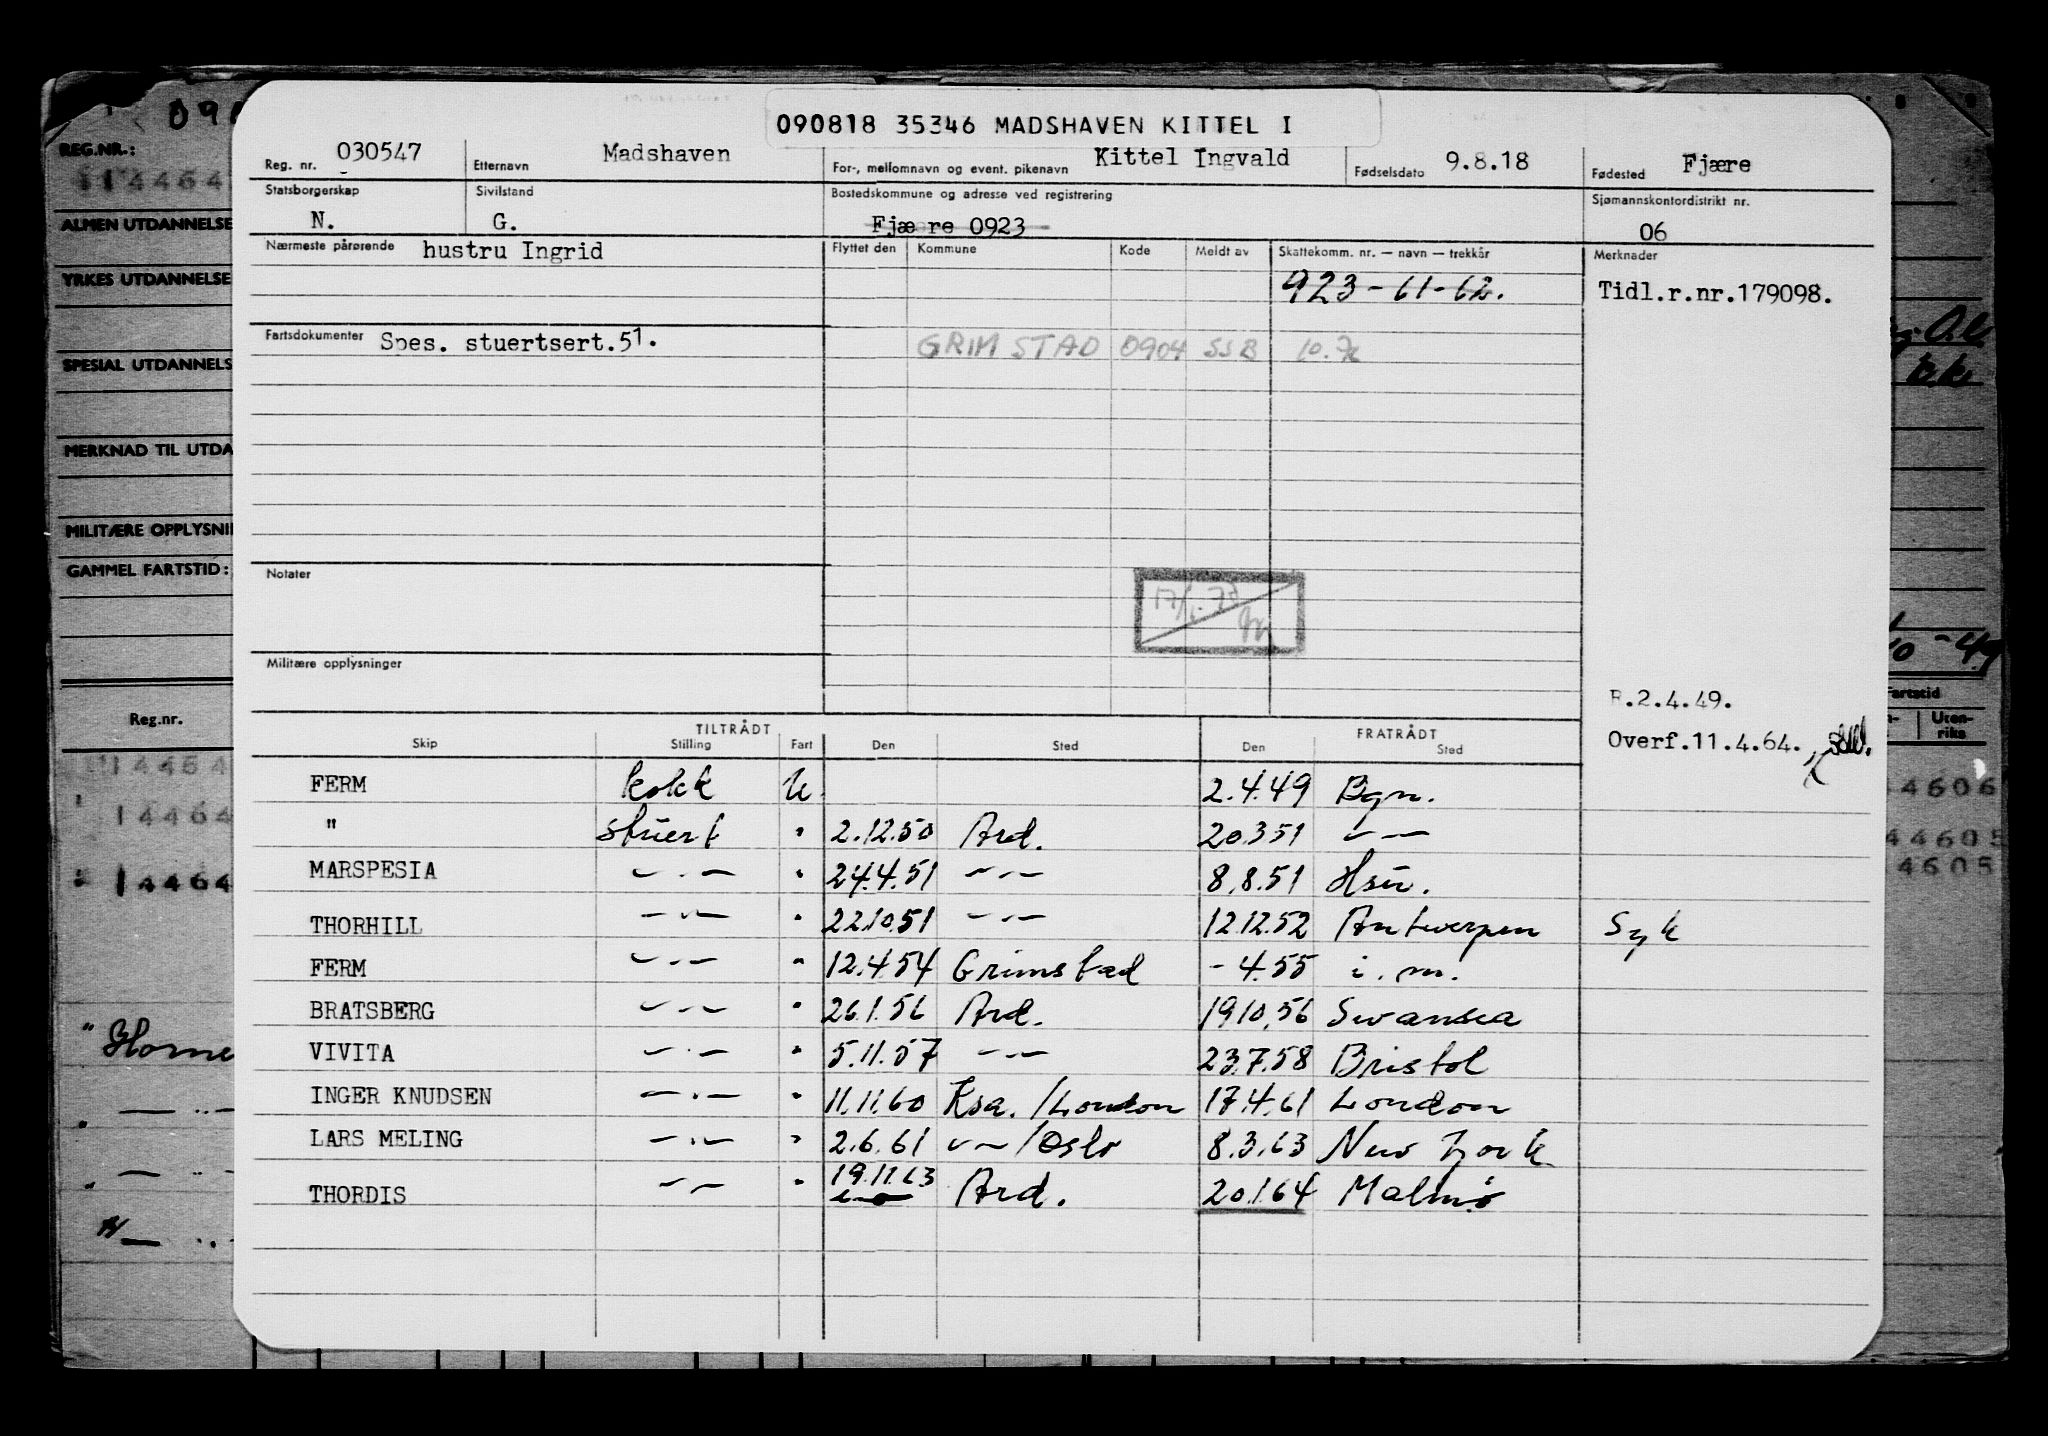 090818 35346 MADSHAVEN KITTEL I
Reg. nr. 030547 Etternavn Madshaven For-, mellomnavn og event. pikenavn Kittel Ingvald Fødselsdato 9.8.18 Fødested Fjære
Statsborgerskap Sivilstand Bostedskommune og adresse ved registrering Sjømannskontordistrikt nr.
N. G. Fjære 0923 06
Nærmeste pårørende hustru Ingrid Flyttet den Kommune Kode Meldt av Skattekomm. nr. — navn — trekkår Merknader
923-61-62. Tidl.r.nr.179098.
Fartsdokumenter Spes. stuertsert.51. GRIMSTAD 0904 SSB
Notater
Militære opplysninger
R.2.4.49.
Overf.11.4.64.
TILTRÅDT FRATRÅDT
Skip Stilling Fart Den Sted Den Sted
FERM kokk U 2.4.49 Bgn.
" stuert " 2.12.50 Ard. 20.3.51 — " —
MARSPESIA — " — " 24.4.51 — " — 8.8.51 Hsu.
THORHILL — " — " 22.10.51 — " — 12.12.52 Antwerpen Syk
FERM — " — " 12.4.54 Grimstad - 4.55 i.m.
BRATSBERG — " — " 26.1.56 Ard. 19.10.56 Swansea
VIVITA — " — " 5.11.57 — " — 23.7.58 Bristol
INGER KNUDSEN — " — " 11.11.60 Ksa./London 17.4.61 London
LARS MELING — " — " 2.6.61 — " — /Oslo 8.3.63 New York
THORDIS — " — " 19.11.63 Ard. 20.1.64 Malmö
REG.NR.:
ALMEN UTDANNELSE
YRKES UTDANNELSE
SPESIAL UTDANNELS
MERKNAD TIL UTDA
MILITÆRE OPPLYSNI
GAMMEL FARTSTID:
Reg.nr.
14464
14464
14464
Fartstid
Uten-
riks
4606
44605
4605